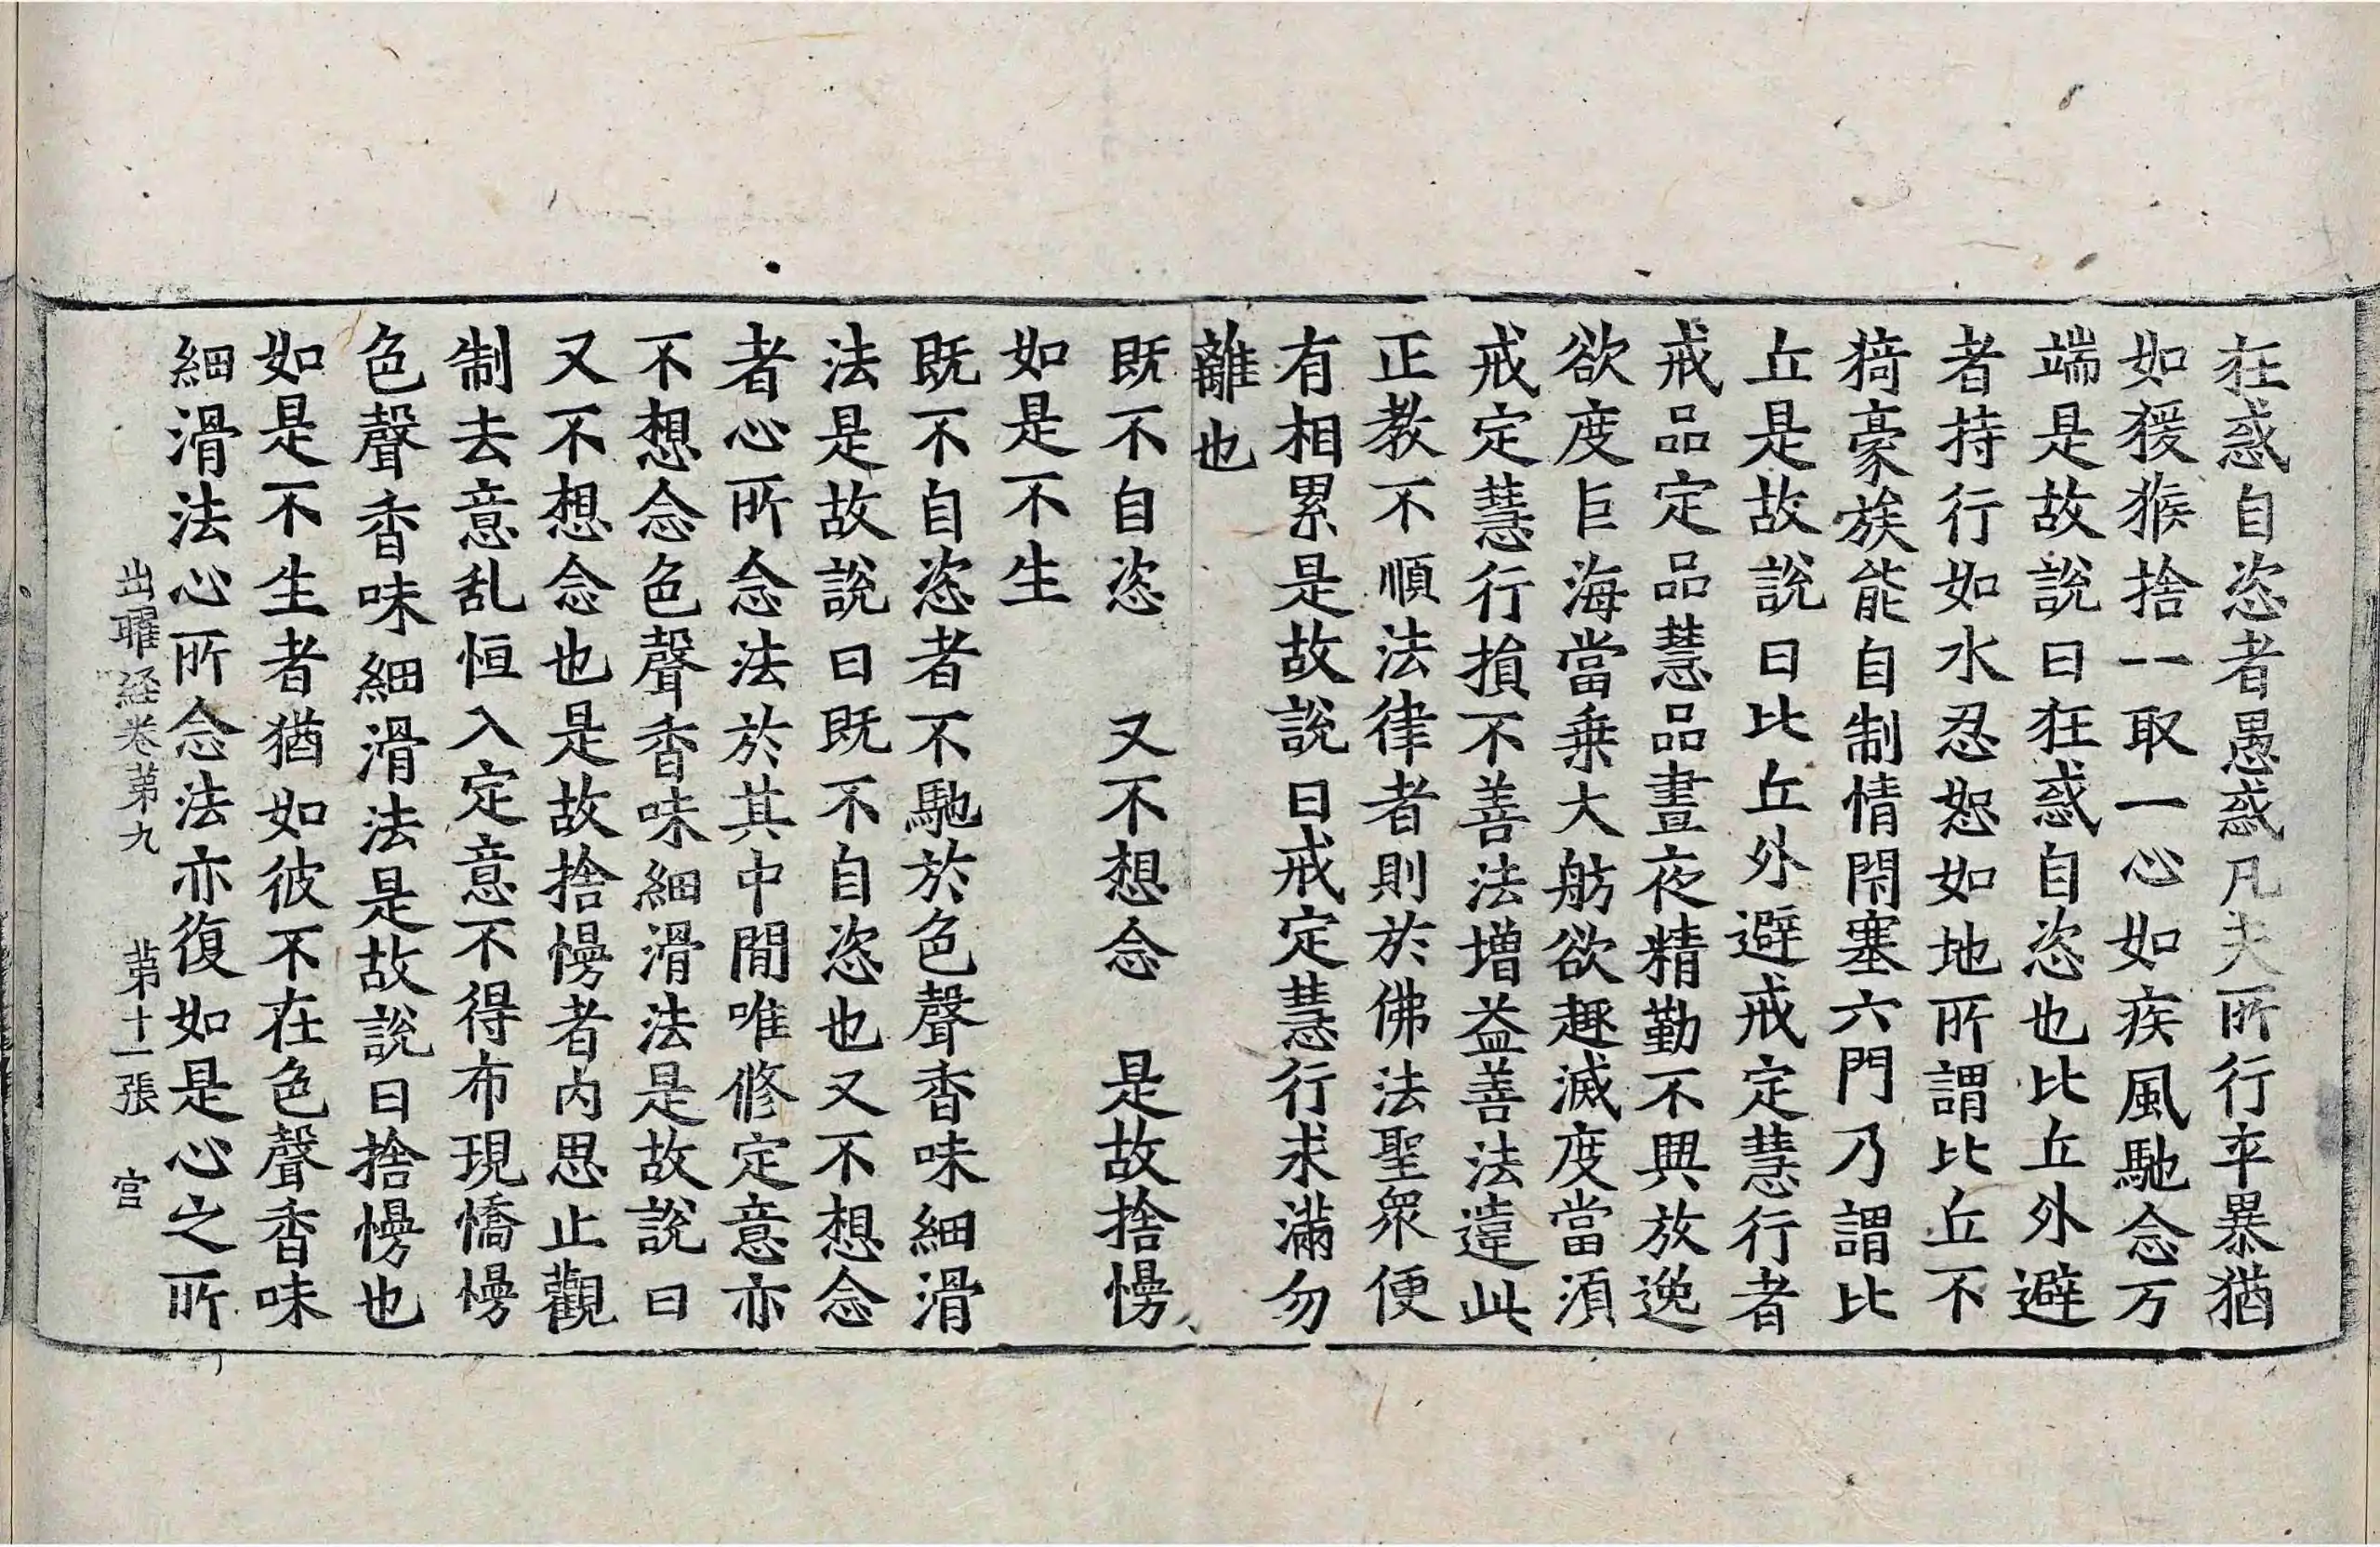 狂惑自恣者愚惑凡夫所行卒暴猶
如猨猴捨一取一心如疾風馳念万
端是故說曰狂惑自恣也比丘外避
者持行如水忍恕如地所謂比丘不
猗豪族能自制情閇塞六門乃謂比
丘是故說曰比丘外避戒定慧行者
戒品定品慧品晝夜精勤不興放逸
欲度巨海當乗大舫欲趣滅度當須
戒定慧行損不善法增益善法違此
正教不順法律者則於佛法聖衆便
有相累是故說曰戒定慧行求滿勿
離也
既不自恣　又不想念　是故捨慢
如是不生
既不自恣者不馳於色聲香味細滑
法是故說曰既不自恣也又不想念
者心所念法於其中閒唯修定意亦
不想念色聲香味細滑法是故說曰
又不想念也是故捨慢者内思止觀
制去意乱恒入定意不得布現憍慢
色聲香味細滑法是故說曰捨慢也
如是不生者猶如彼不在色聲香味
細滑法心所念法亦復如是心之所
出曜経卷苐九　苐十一張　官